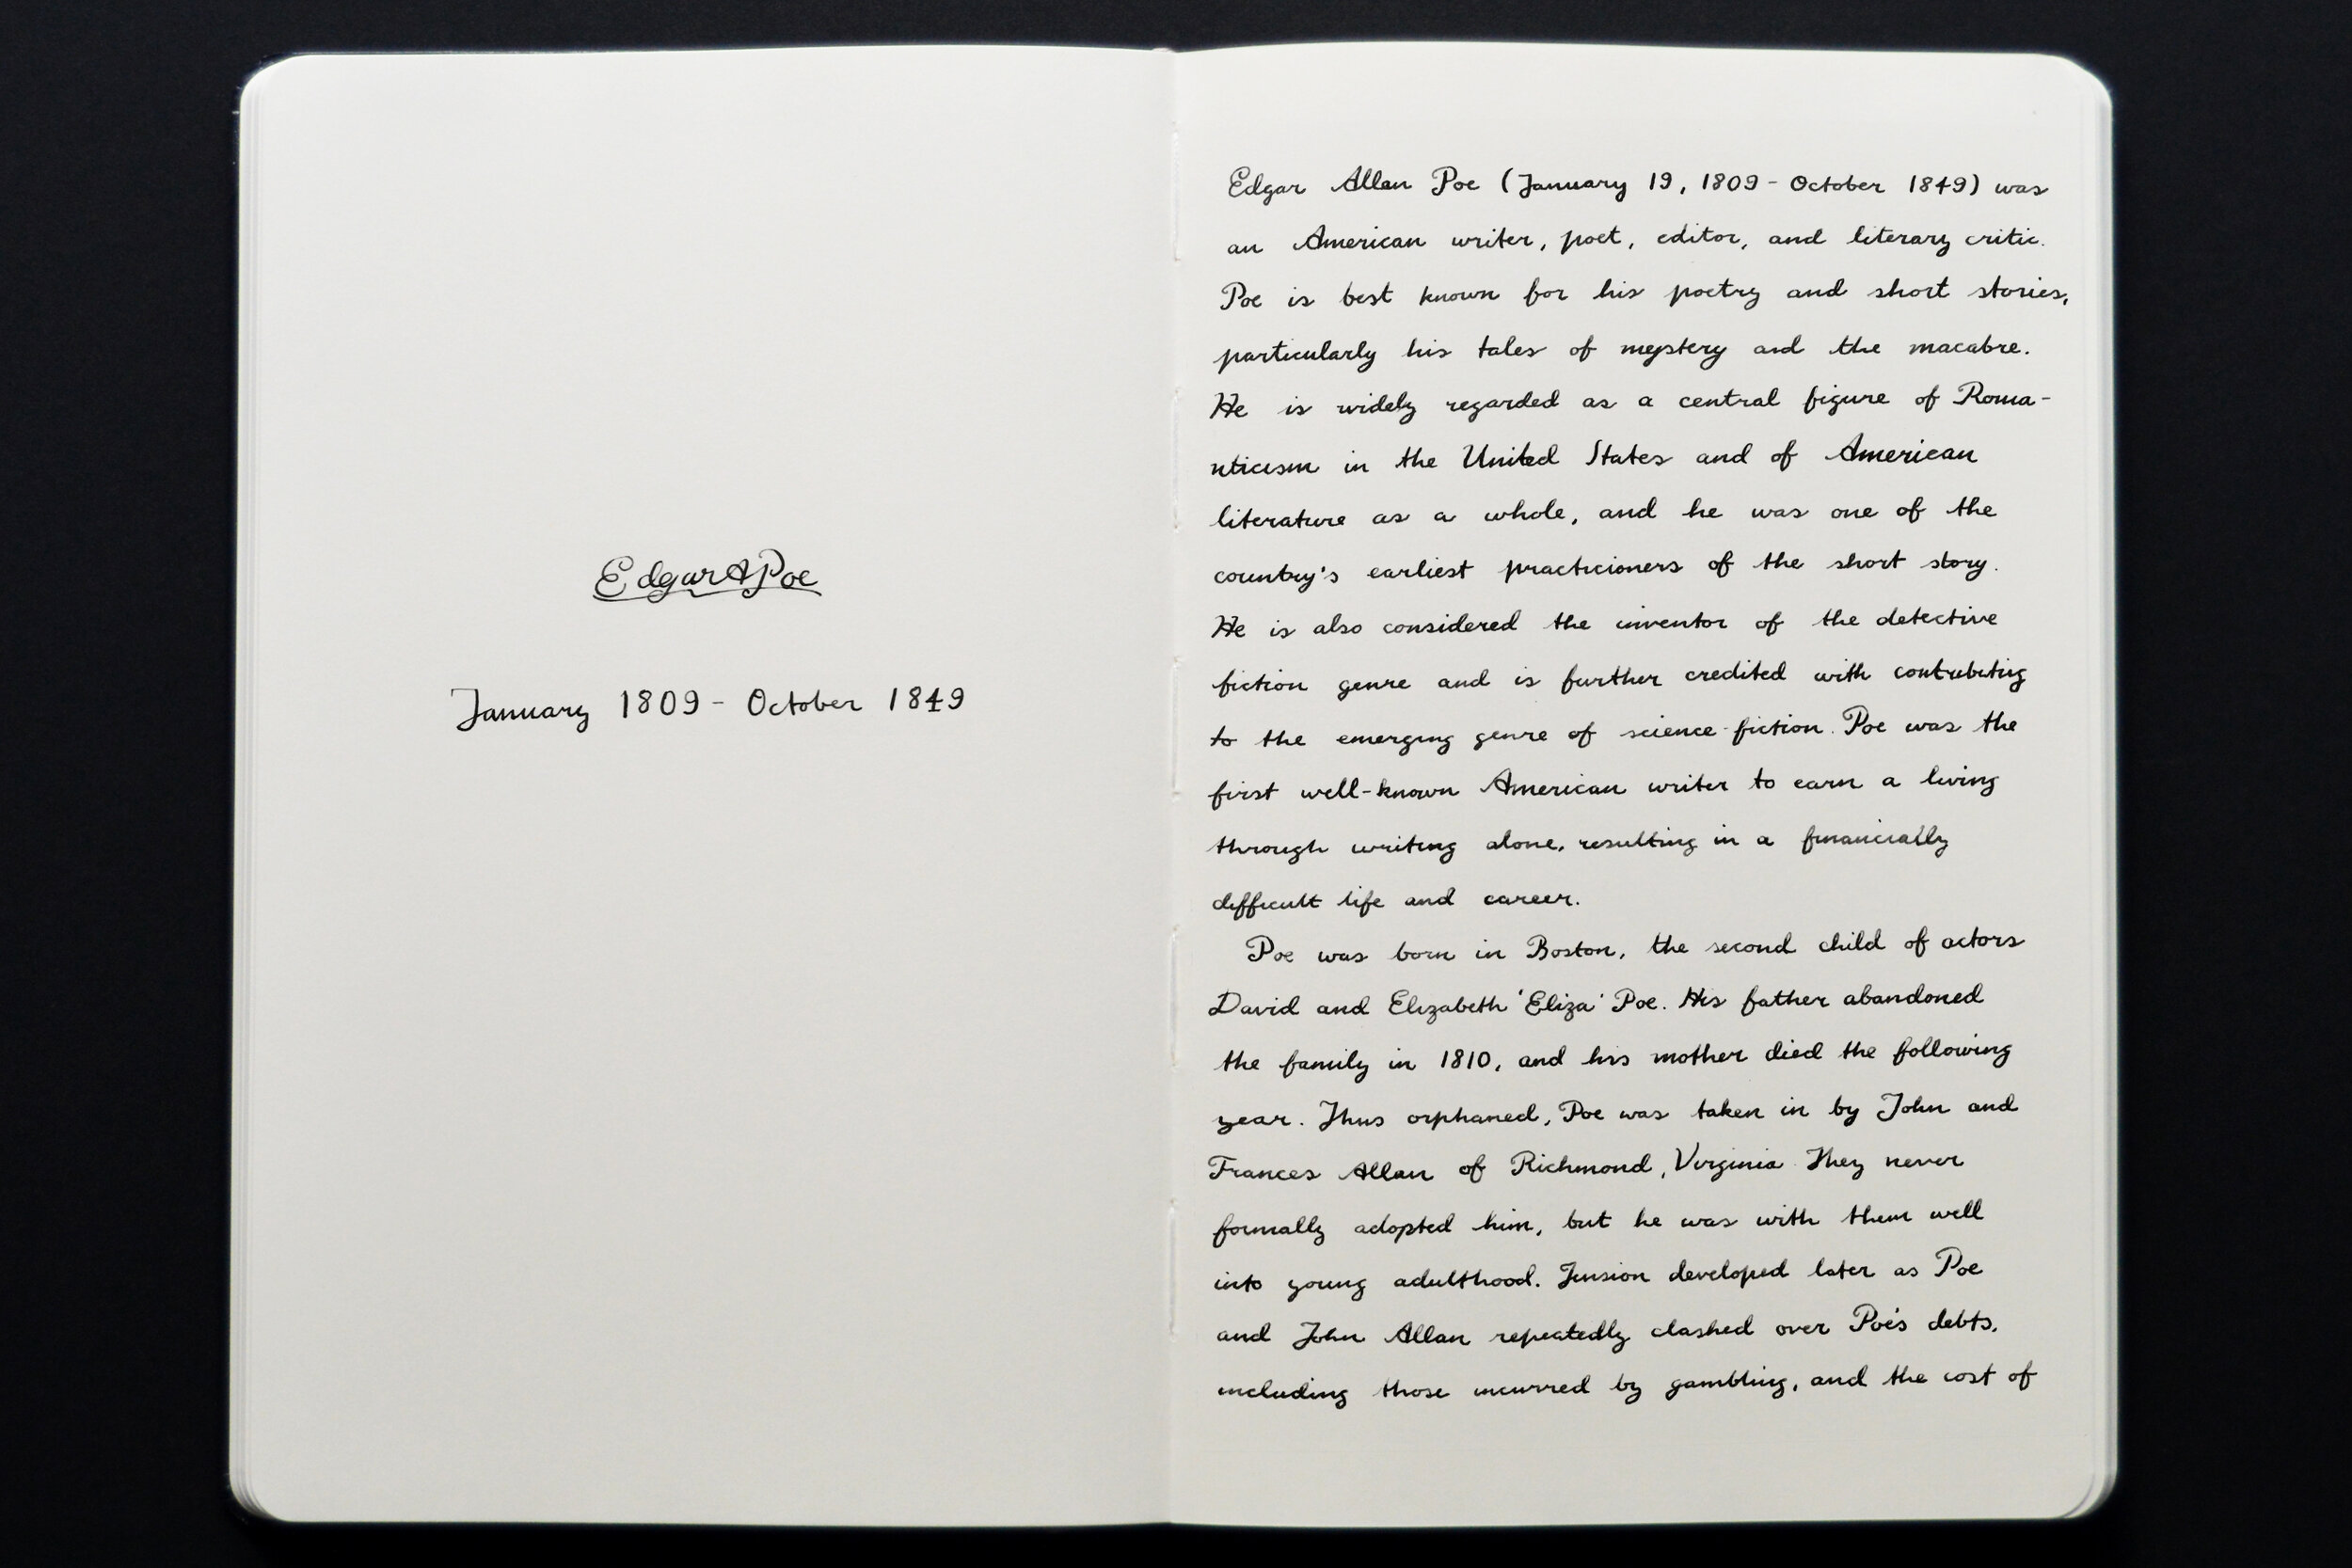 Edgar A Poe
January 1809 - October 1849
Edgar Allan Poe (January 19, 1809 - October 1849) was
an American writer, poet, editor, and literary critic.
Poe is best known for his poetry and short stories,
particularly his tales of mystery and the macabre.
He is widely regarded as a central figure of Roma-
nticism in the United States and of American
literature as a whole, and he was one of the
country's earliest practicioners of the short story.
He is also considered the inventor of the detective
fiction genre and is further credited with contributing
to the emerging genre of science fiction. Poe was the
first well-known American writer to earn a living
through writing alone, resulting in a financially
difficult life and career.
Poe was born in Boston, the second child of actors
David and Elizabeth 'Eliza' Poe. His father abandoned
the family in 1810, and his mother died the following
year. Thus orphaned, Poe was taken in by John and
Frances Allan of Richmond, Virginia. They never
formally adopted him, but he was with them well
into young adulthood. Tension developed later as Poe
and John Allan repeatedly clashed over Poe's debts,
including those incurred by gambling, and the cost of